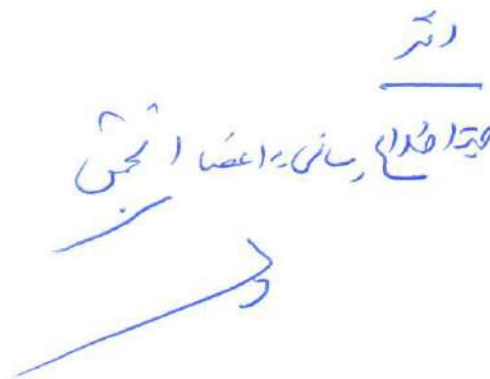 دفتر
جهت اطلاع رسانی به اعضا انجمن